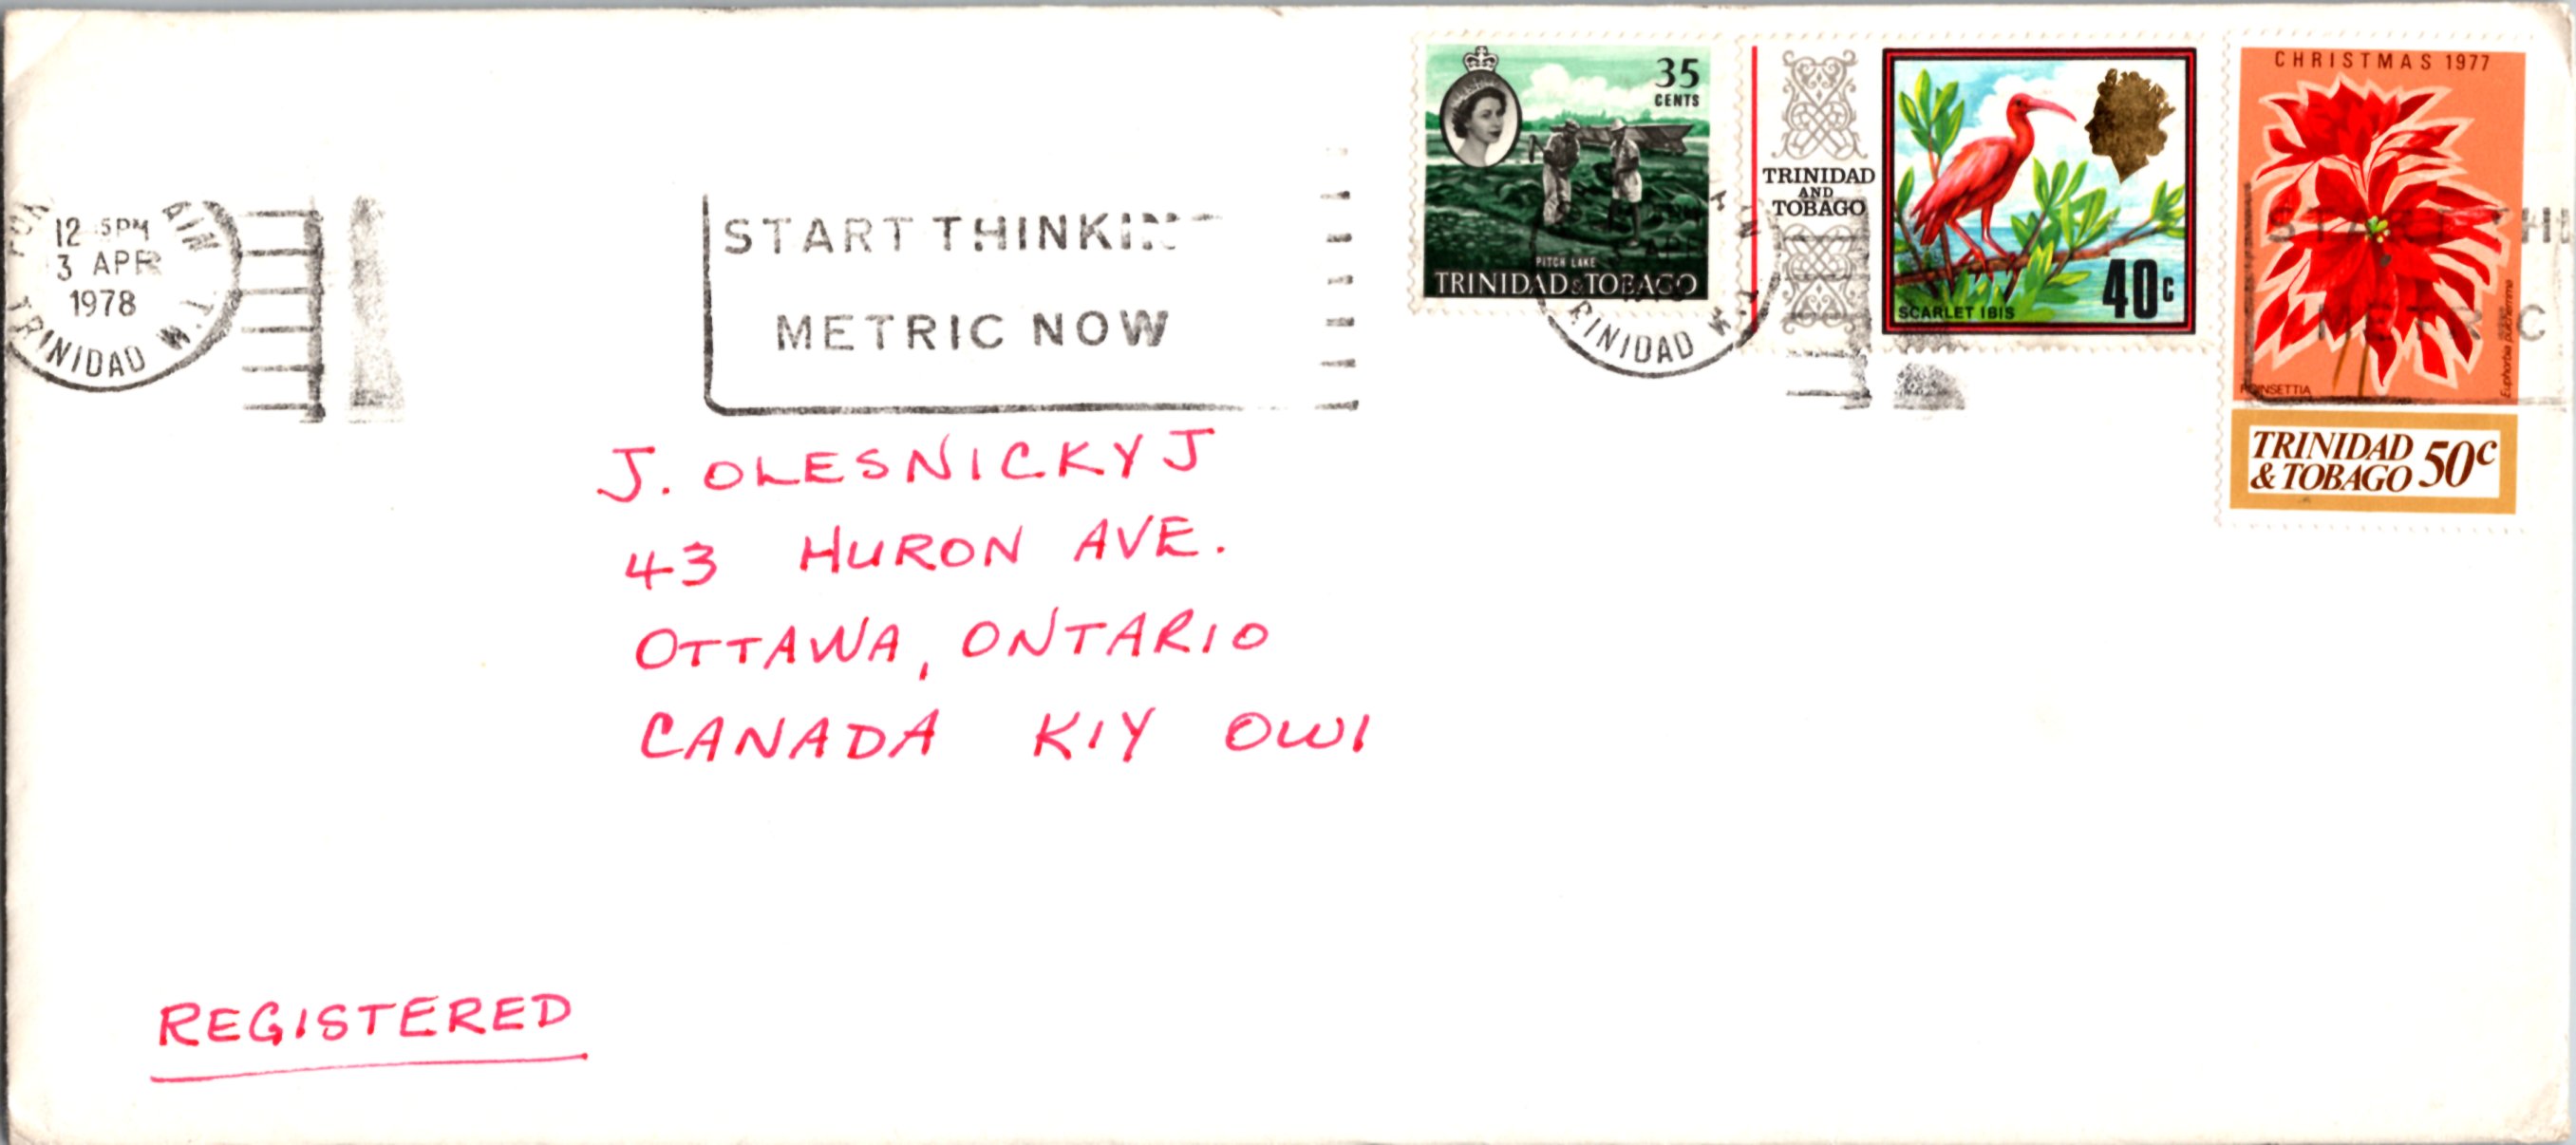 12 5PM
3 APR
1978
TRINIDAD W.I.
START
METRIC NOW
35
CENTS
PITCH LAKE
TRINIDAD & TOBAGO
TRINIDAD W.I.
TRINIDAD
AND
TOBAGO
SCARLET IBIS
40c
CHRISTMAS 1977
START
METRIC
POINSETTIA
Euphorbia pulcherrima
TRINIDAD
& TOBAGO 50c
J. OLESNICKYJ
43 HURON AVE.
OTTAWA, ONTARIO
CANADA K1Y OW1
REGISTERED